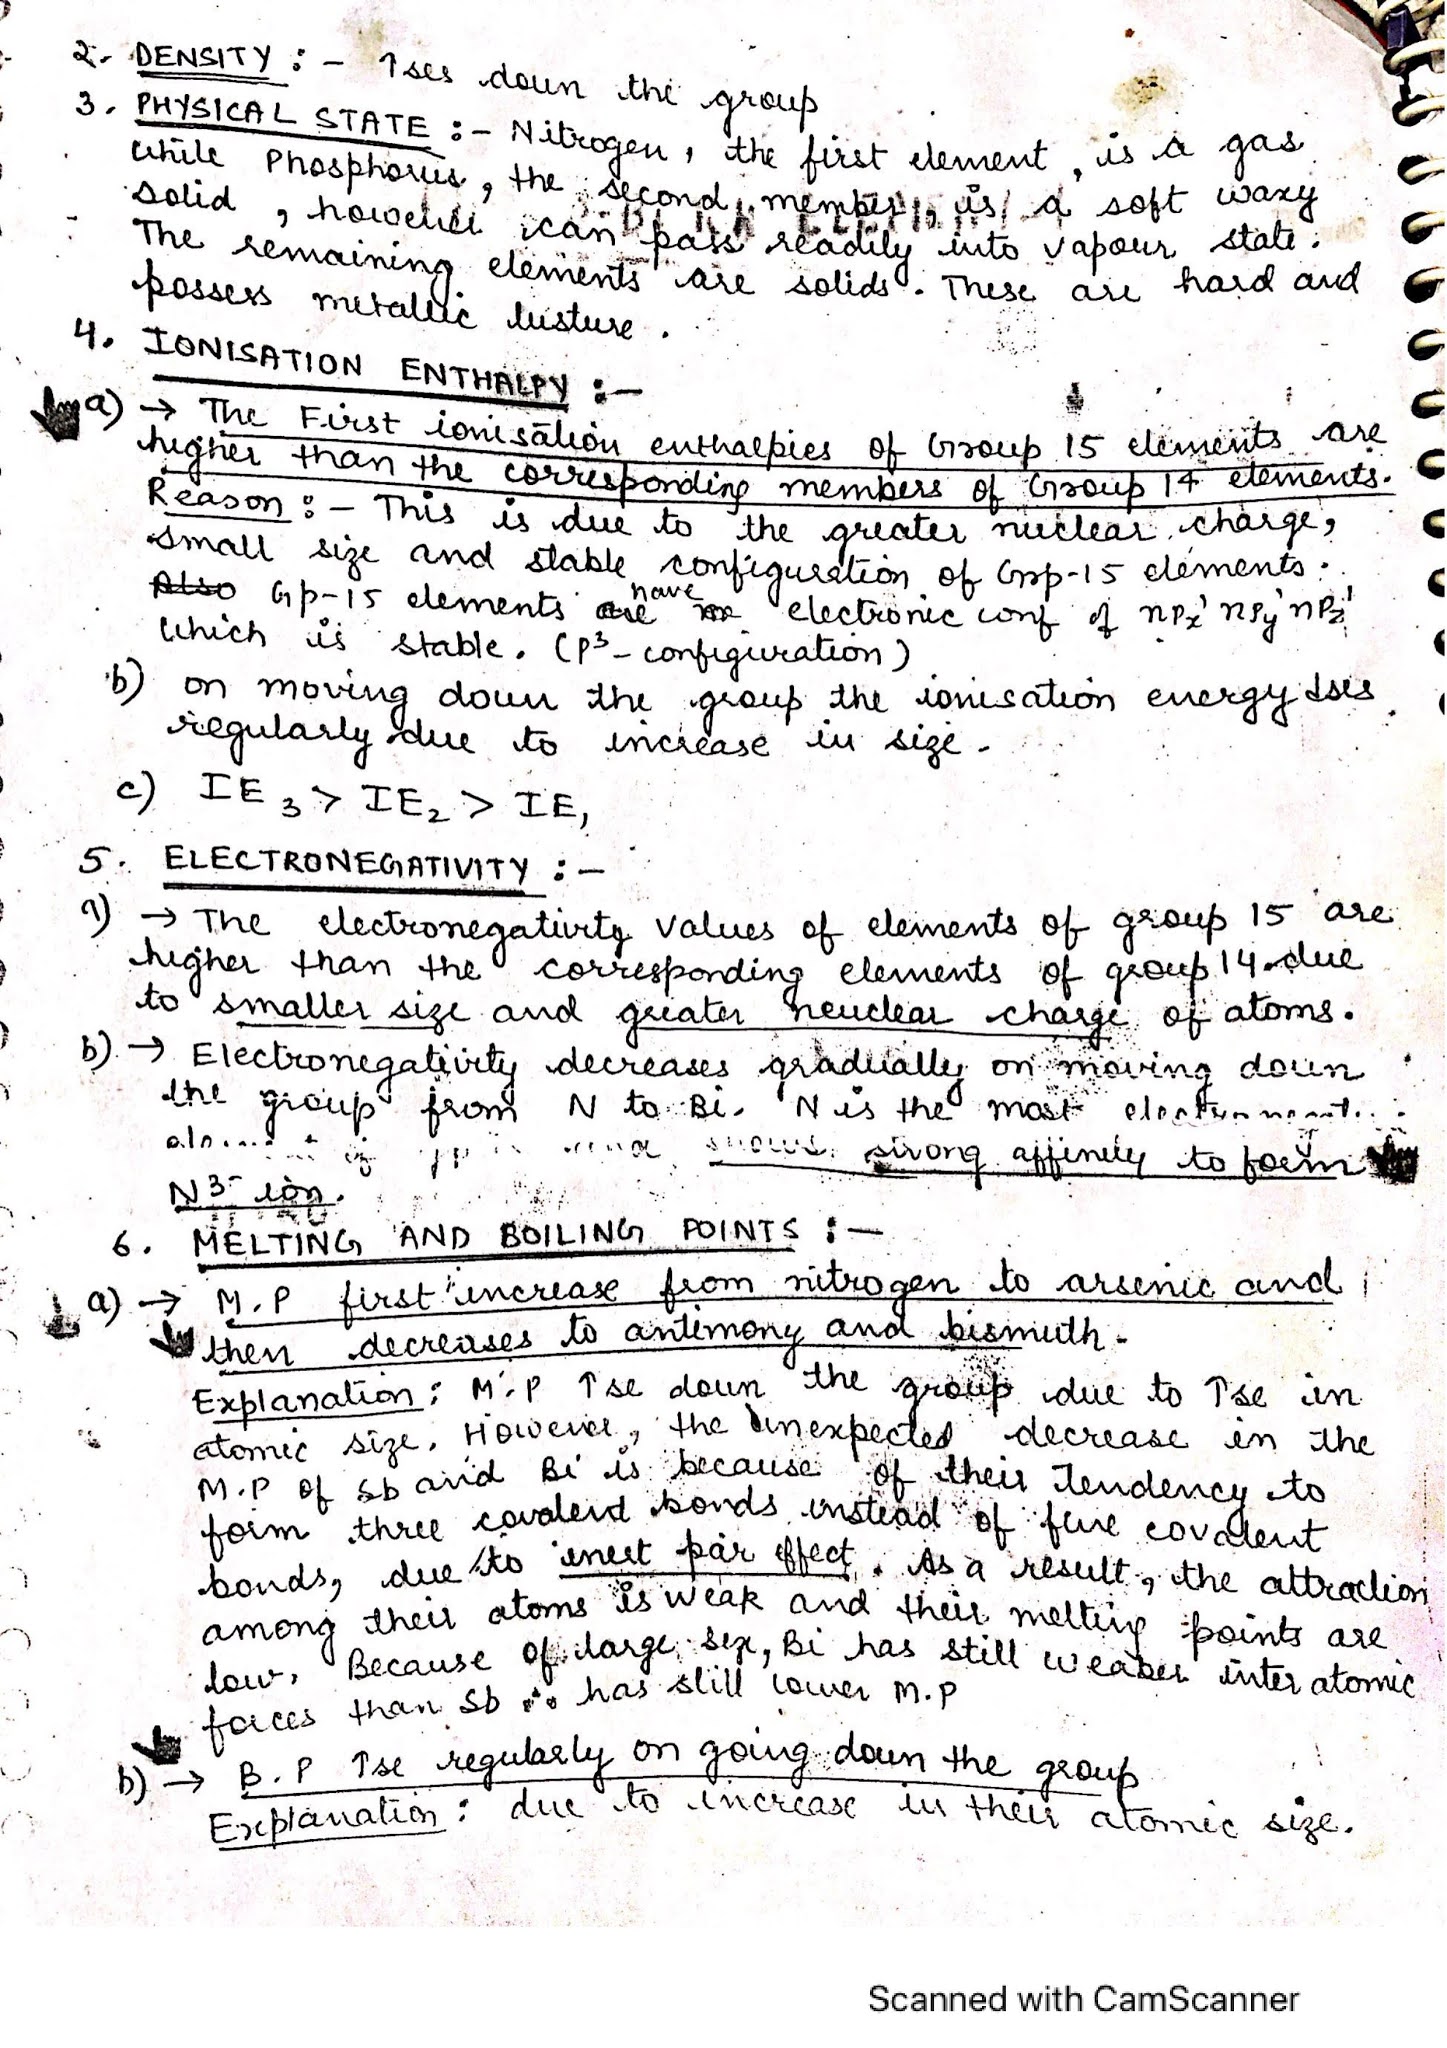 2. DENSITY :- ↑ses down the group
3. PHYSICAL STATE :- Nitrogen, the first element, is a gas
while Phosphorus, the second member, is a soft waxy
solid, however can pass readily into vapour state.
The remaining elements are solids. These are hard and
possess metallic lusture.
4. IONISATION ENTHALPY :-
a) → The First ionisation enthalpies of Group 15 elements are
higher than the corresponding members of Group 14 elements.
Reason :- This is due to the greater nuclear charge,
small size and stable configuration of Grp-15 elements.
Also Gp-15 elements are have electronic conf of npx¹ npy¹ npz¹
which is stable. (P³-configuration)
b) on moving down the group the ionisation energy ↓ses
regularly due to increase in size.
c) IE₃ > IE₂ > IE₁
5. ELECTRONEGATIVITY :-
a) → The electronegativity values of elements of group 15 are
higher than the corresponding elements of group 14 due
to smaller size and greater neuclear charge of atoms.
b) → Electronegativity decreases gradually on moving down
the group from N to Bi. N is the most
strong affinity to form
N³⁻ ion.
6. MELTING AND BOILING POINTS :-
a) → M.P first increase from nitrogen to arsenic and
then decreases to antimony and bismuth.
Explanation : M.P ↑se down the group due to ↑se in
atomic size. However, the unexpected decrease in the
M.P of Sb and Bi is because of their Tendency to
form three covalent bonds instead of five covalent
bonds, due to inert pair effect. As a result, the attraction
among their atoms is weak and their melting points are
low. Because of large size, Bi has still weaker inter atomic
forces than Sb ∴ has still lower M.P
b) → B.P ↑se regularly on going down the group
Explanation : due to increase in their atomic size.
Scanned with CamScanner